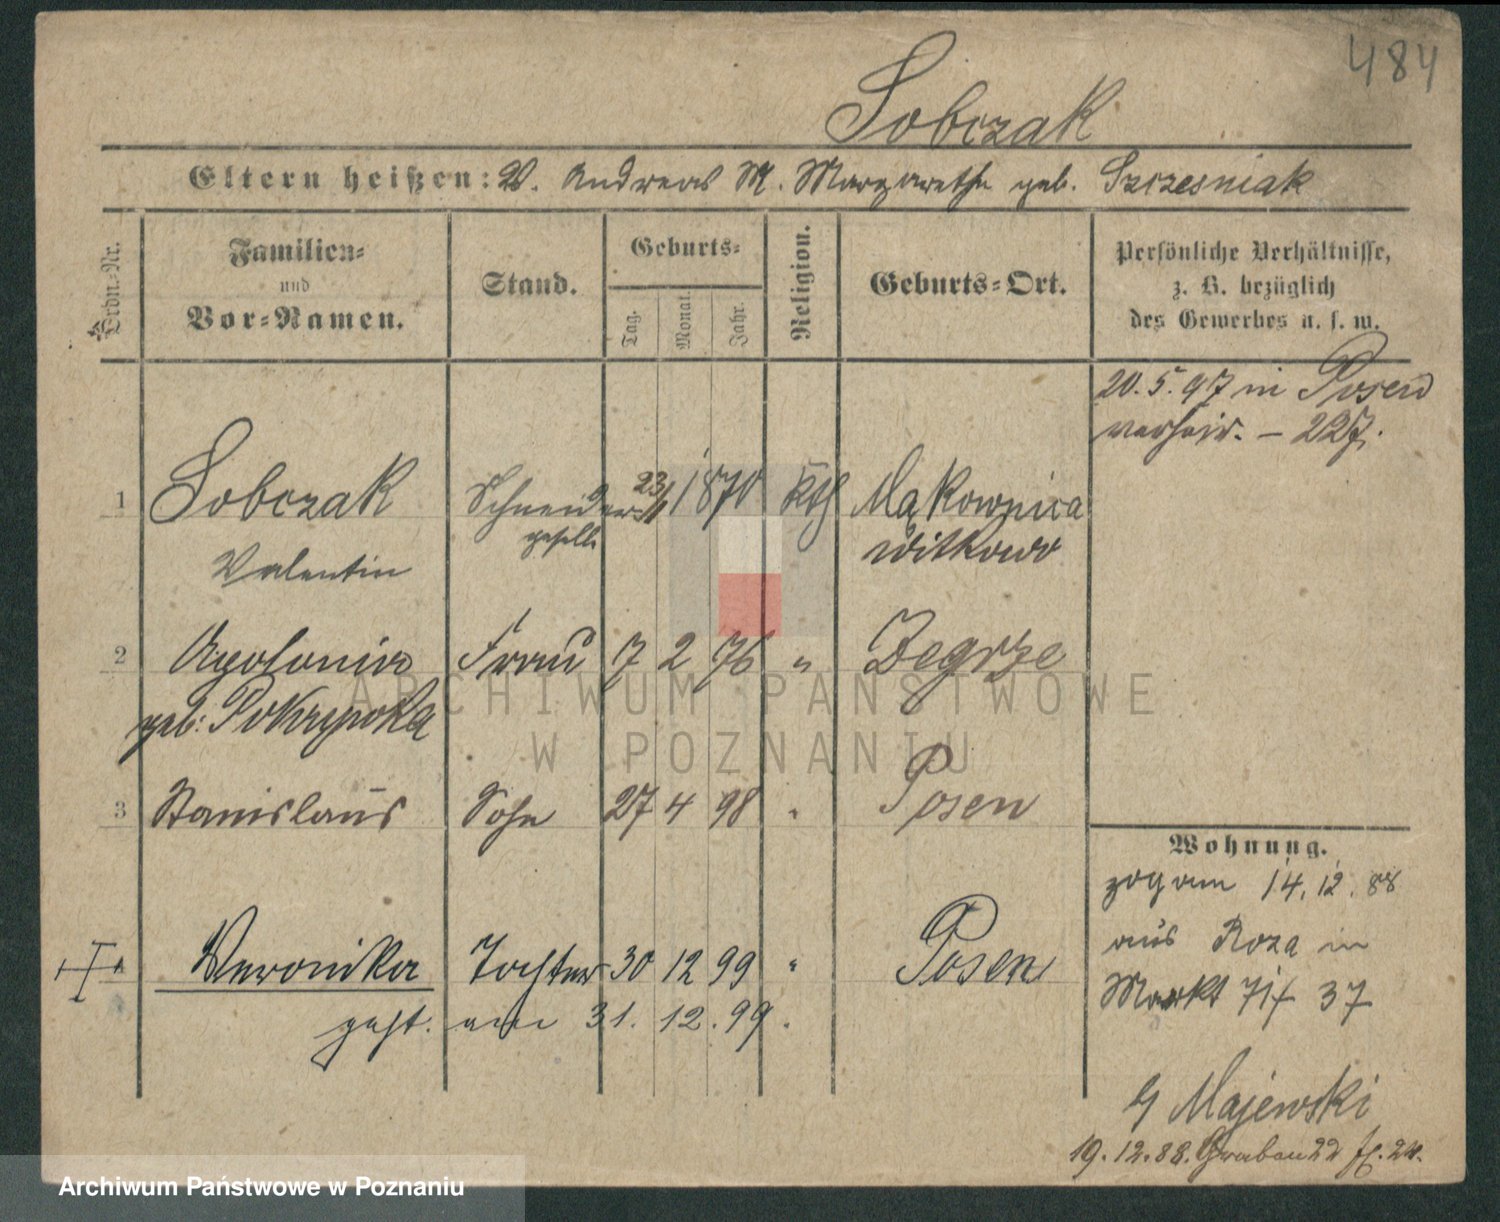 484
Sobczak
Eltern heißen: V. Andreas M. Margarethe geb. Szczesniak
Ordn.-Nr.
Familien-
und
Vor-Namen.
Stand.
Geburts-
Tag.
Monat.
Jahr.
Religion.
Geburts-Ort.
Persönliche Verhältnisse,
z. B. bezüglich
des Gewerbes u. s. w.
20. 5. 97 in Posen
verheir. - 227.
1 Sobczak Schneider 23/1 1870 kth Mąkownica
geselle Witkowo
Valentin
2 Apolonia Frau 7 2 76 " Zegrze
geb:
3 Stanislaus Sohn 27 4 98 " Posen
Veronika Tochter 30 12 99 " Posen
gest. am 31. 12. 99.
Wohnung.
zog am 14. 12. 88
aus Roza in
Markt 37
Majewski
19. 12. 88. Graben 22
ARCHIWUM PAŃSTWOWE
W POZNANIU
Archiwum Państwowe w Poznaniu